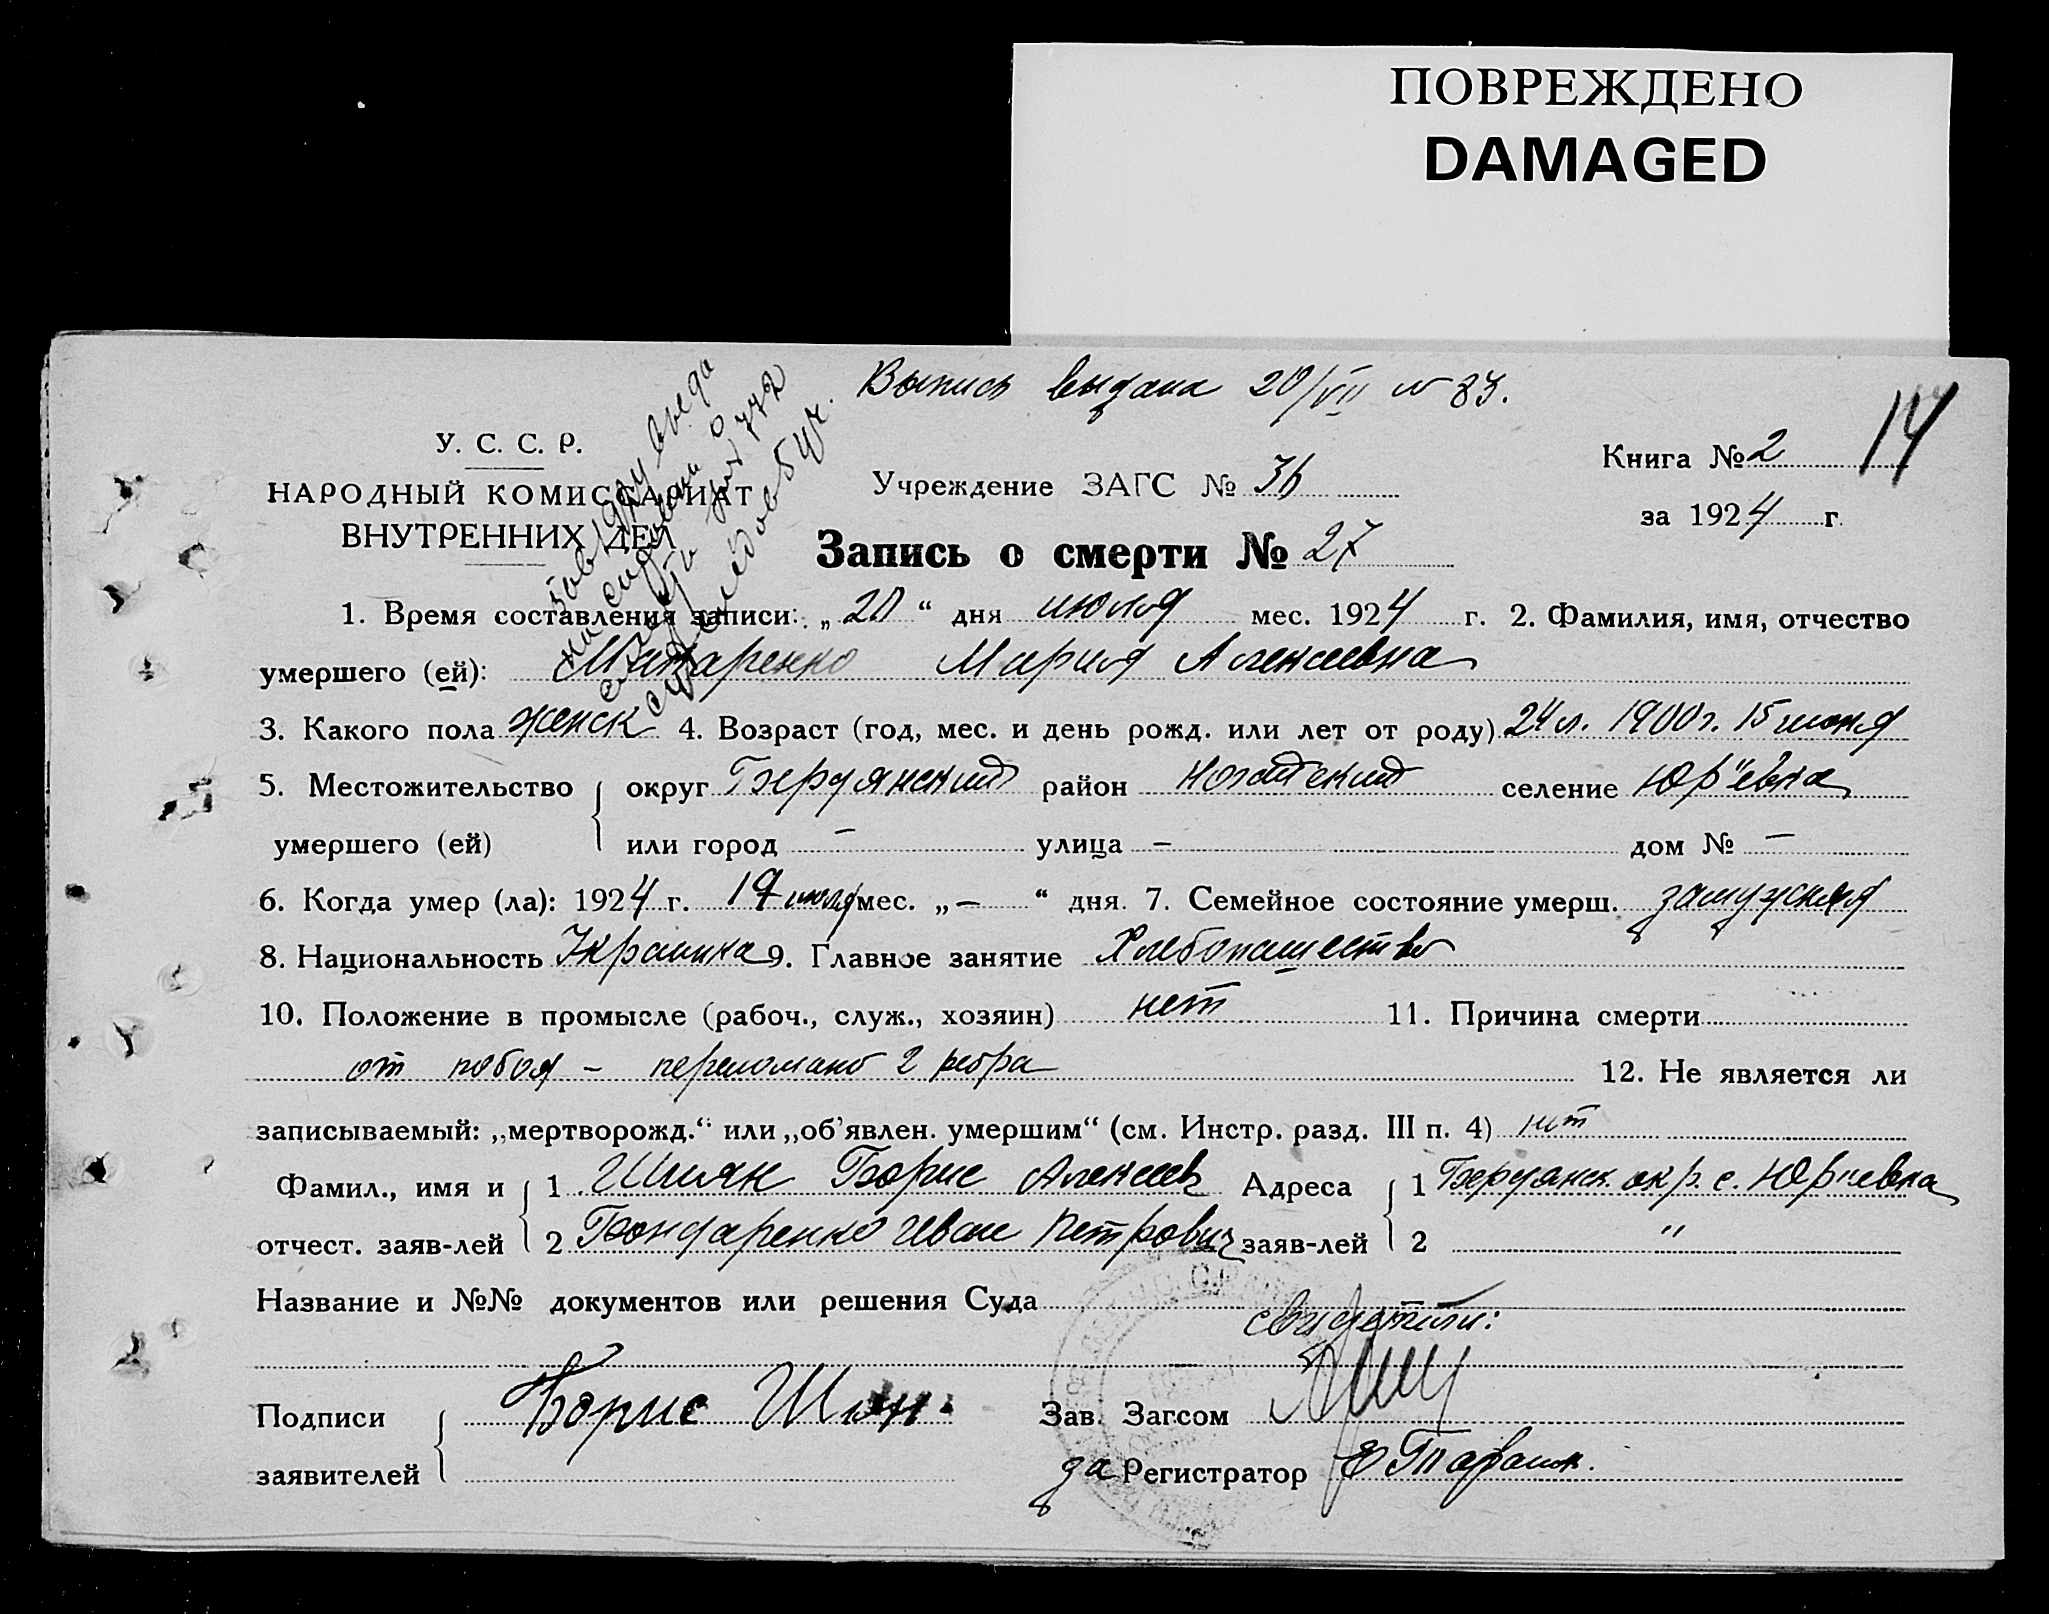 ПОВРЕЖДЕНО
DAMAGED
Выпись выдана 20/VII № 83.
14
У. С. С. Р.
НАРОДНЫЙ КОМИССАРИАТ
ВНУТРЕННИХ ДЕЛ
Учреждение ЗАГС № 36
Книга № 2
за 1924 г.
Запись о смерти № 27
1. Время составления записи: „20“ дня июля мес. 1924 г. 2. Фамилия, имя, отчество
умершего (ей): Мария Алексеевна
3. Какого пола женск 4. Возраст (год, мес. и день рожд. или лет от роду) 24 л. 1900 г. 15 июня
5. Местожительство округ Бердянский район Ногайский селение Юр'евка
умершего (ей) или город — улица — дом № —
6. Когда умер (ла): 1924 г. 19 июля мес. „—“ дня. 7. Семейное состояние умерш. замужняя
8. Национальность Украинка 9. Главное занятие Хлебопашество
10. Положение в промысле (рабоч., служ., хозяин) нет 11. Причина смерти
от побоя – переломано 2 ребра 12. Не является ли
записываемый: „мертворожд.“ или „об'явлен. умершим“ (см. Инстр. разд. III п. 4) нет
Фамил., имя и 1 Шиян Борис Алексеев Адреса 1 Бердянск. окр. с. Юрьевка
отчест. заяв-лей 2 Бондаренко Иван Петрович заяв-лей 2 "
Название и №№ документов или решения Суда
свидетели:
Подписи Борис Шиян Зав. Загсом
заявителей за Регистратор